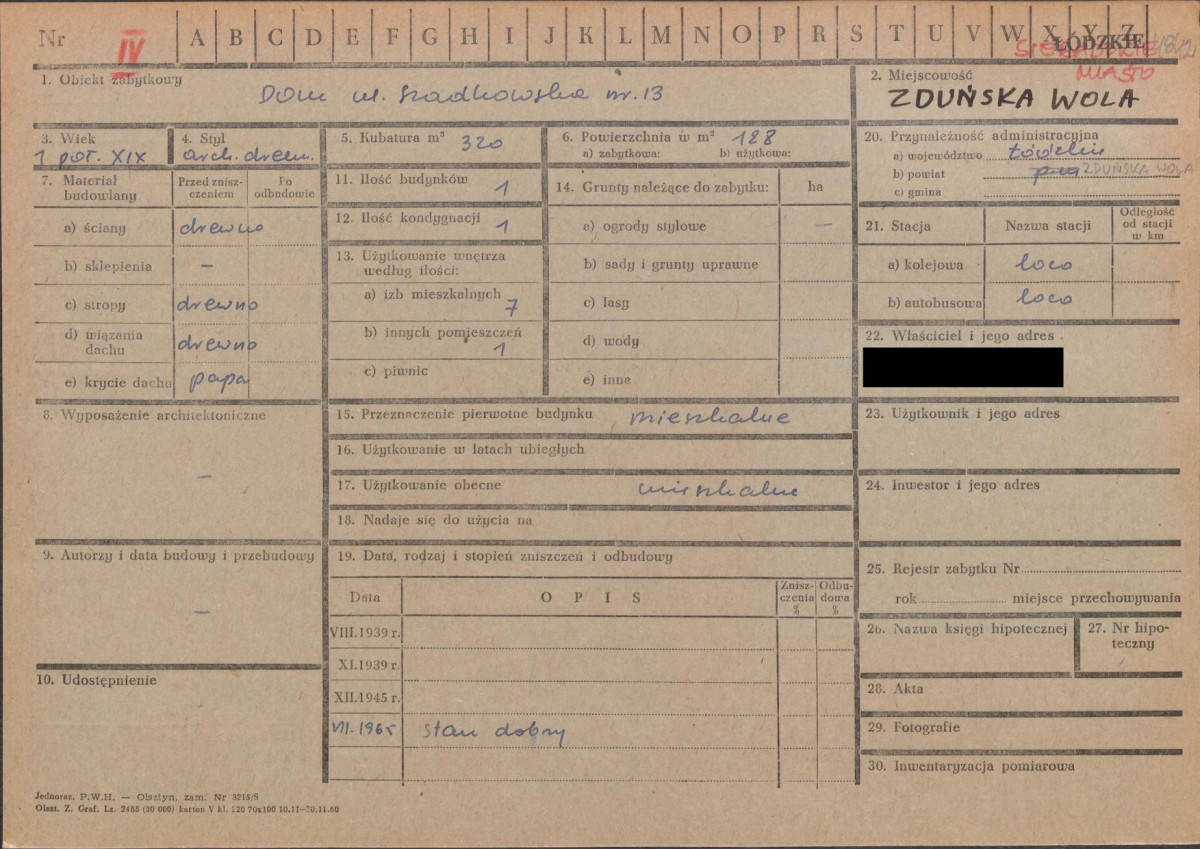 Nr IV A B C D E F G H I J K L M N O P R S T U V W X Y Z
ŁÓDZKIE
SIERADZKIE
MIASTO
1. Obiekt zabytkowy
Dom ul. Szadkowska nr. 13
2. Miejscowość
ZDUŃSKA WOLA
3. Wiek
1 poł. XIX
4. Styl
arch. drewn.
5. Kubatura m³ 320
6. Powierzchnia w m² 128
a) zabytkowa: b) użytkowa:
20. Przynależność administracyjna
a) województwo łódzkie
b) powiat ZDUŃSKA WOLA
c) gmina
7. Materiał budowlany
Przed zniszczeniem
Po odbudowie
a) ściany drewno
b) sklepienia –
c) stropy drewno
d) wiązania dachu drewno
e) krycie dachu papa
11. Ilość budynków 1
12. Ilość kondygnacji 1
13. Użytkowanie wnętrza
według ilości:
a) izb mieszkalnych 7
b) innych pomieszczeń 1
c) piwnic
14. Grunty należące do zabytku: ha
a) ogrody stylowe –
b) sady i grunty uprawne
c) lasy
d) wody
e) inne
21. Stacja
Nazwa stacji
Odległość
od stacji
w km
a) kolejowa loco
b) autobusowa loco
22. Właściciel i jego adres
8. Wyposażenie architektoniczne
–
15. Przeznaczenie pierwotne budynku mieszkalne
16. Użytkowanie w latach ubiegłych
17. Użytkowanie obecne mieszkalne
18. Nadaje się do użycia na
23. Użytkownik i jego adres
24. Inwestor i jego adres
9. Autorzy i data budowy i przebudowy
–
10. Udostępnienie
19. Data, rodzaj i stopień zniszczeń i odbudowy
Data
OPIS
Zniszczenia %
Odbudowa %
VIII.1939 r.
XI.1939 r.
XII.1945 r.
VII.1965 stan dobry
25. Rejestr zabytku Nr
rok miejsce przechowywania
26. Nazwa księgi hipotecznej
27. Nr hipoteczny
28. Akta
29. Fotografie
30. Inwentaryzacja pomiarowa
Jednoraz. P.W.H. — Olsztyn, zam. Nr 3215/S
Olszt. Z. Graf. Lz. 2455 (20 000) karton V kl. 220 70x100 10.11—20.11.60